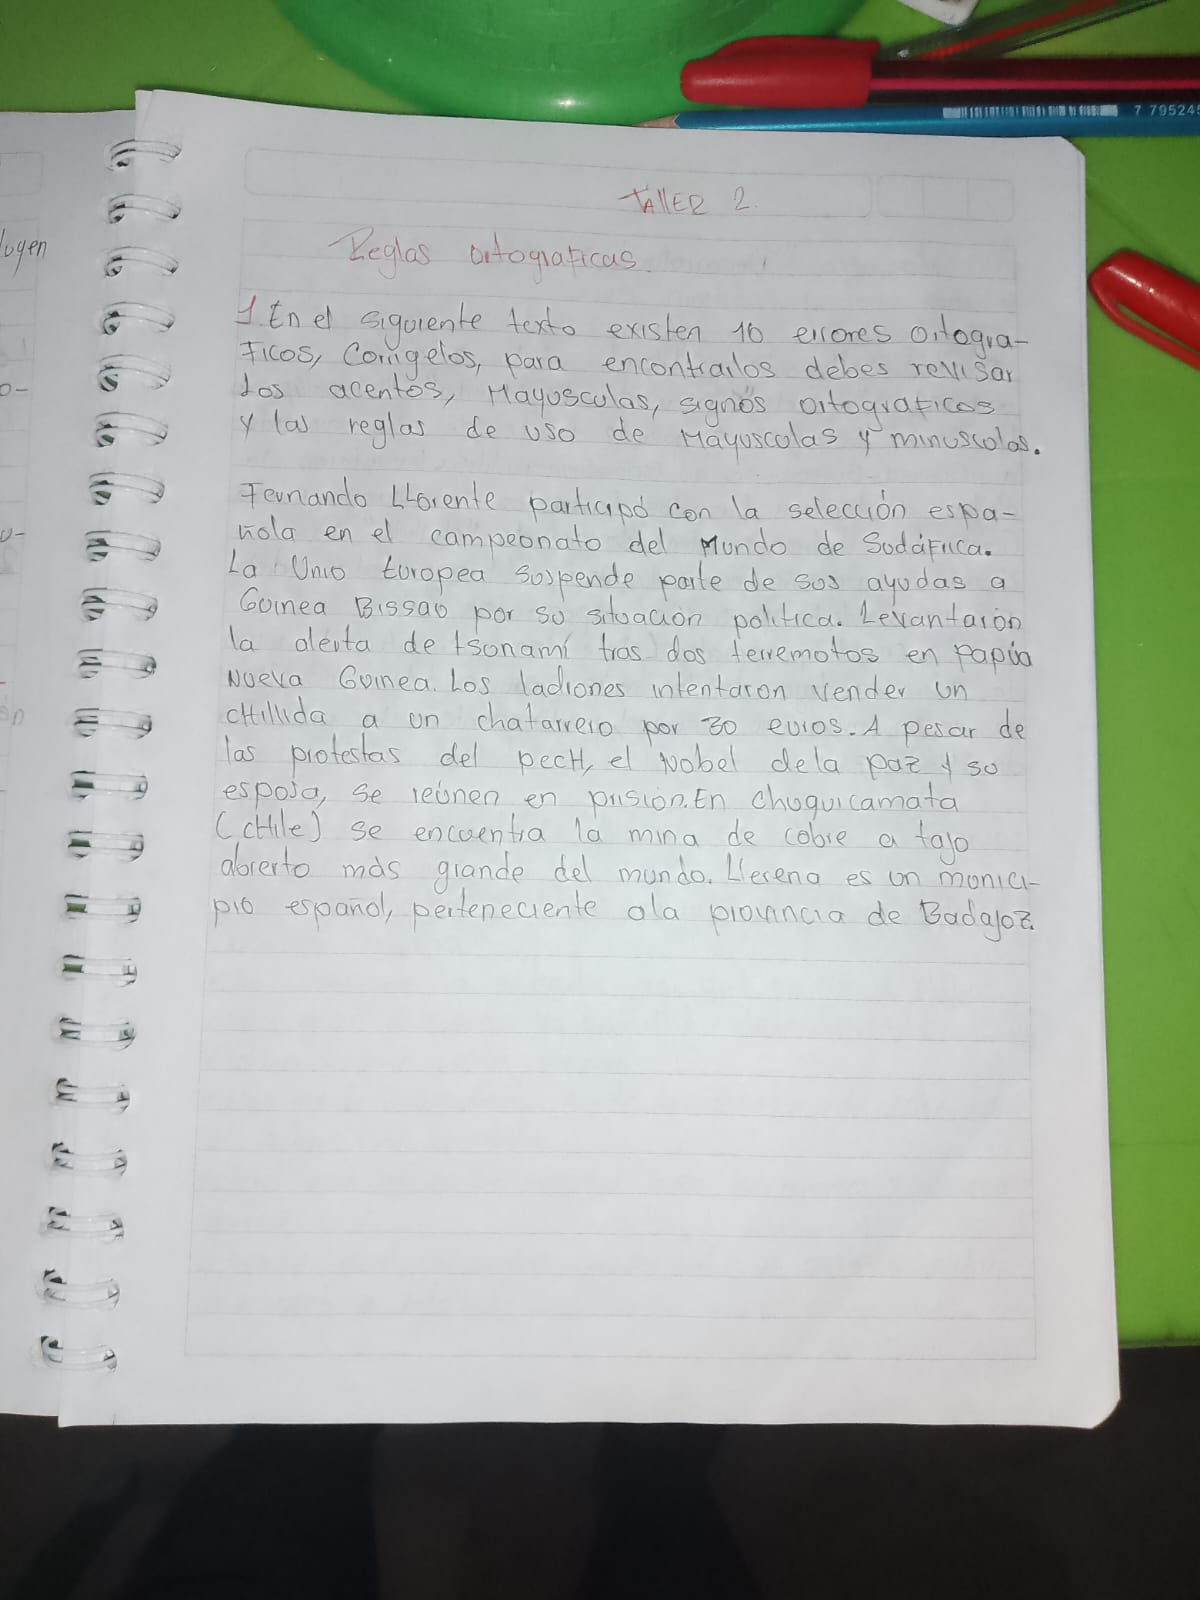 TALLER 2.
Reglas ortograficas.
1. En el siguiente texto existen 10 errores ortogra-
ficos, Corrigelos, para encontrarlos debes revisar
Los acentos, Mayusculas, signos ortograficos
y las reglas de uso de Mayusculas y minusculas.
Fernando LLorente participó con la selección espa-
ñola en el campeonato del Mundo de Sudáfrica.
La Unio Europea suspende parte de sus ayudas a
Guinea Bissau por su situación politica. Levantarón
la alerta de tsonamí tras dos terremotos en Papúa
Nueva Guinea. Los ladrones intentaron vender un
cHillida a un chatarrero por 30 euros. A pesar de
las protestas del pecH, el Nobel dela paz y su
esposa, se reúnen en prisión. En Chuquicamata
(cHile) se encuentra la mina de cobre a tajo
abierto más grande del mundo. Llerena es un munici-
pio español, perteneciente ala provincia de Badajoz.
7 795245
lugen
o-